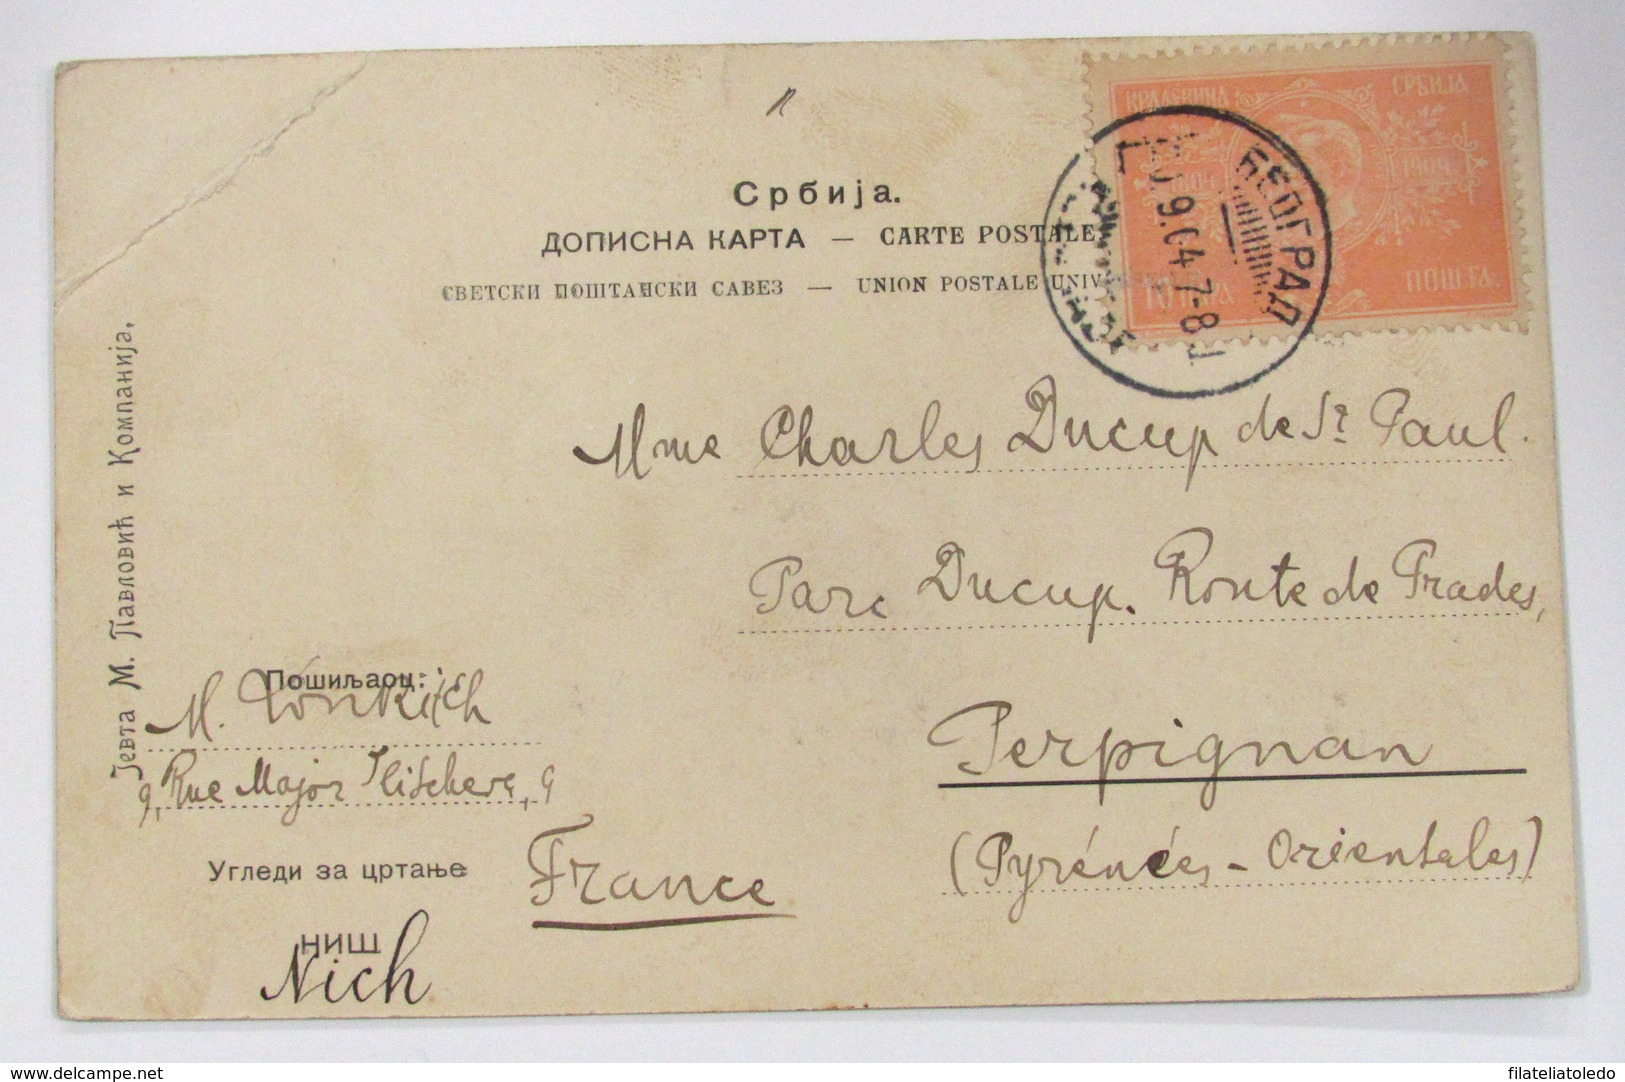 Србија.
ДОПИСНА КАРТА — CARTE POSTALE
СВЕТСКИ ПОШТАНСКИ САВЕЗ — UNION POSTALE UNIV
КРАЉЕВИНА СРБИЈА
1904 1904
10 ПАРА ПОШТА
БЕОГРАД
9.04.7-8
Mme Charles Ducup de St Paul.
Parc Ducup. Route de Prades,
Perpignan
(Pyrénées-Orientales)
France
Јевта М. Павловић и Компанија,
Пошиљаоц:
M.
9, Rue Major 9
Угледи за цртање
НИШ
Nich
www.delcampe.net
filateliatoledo